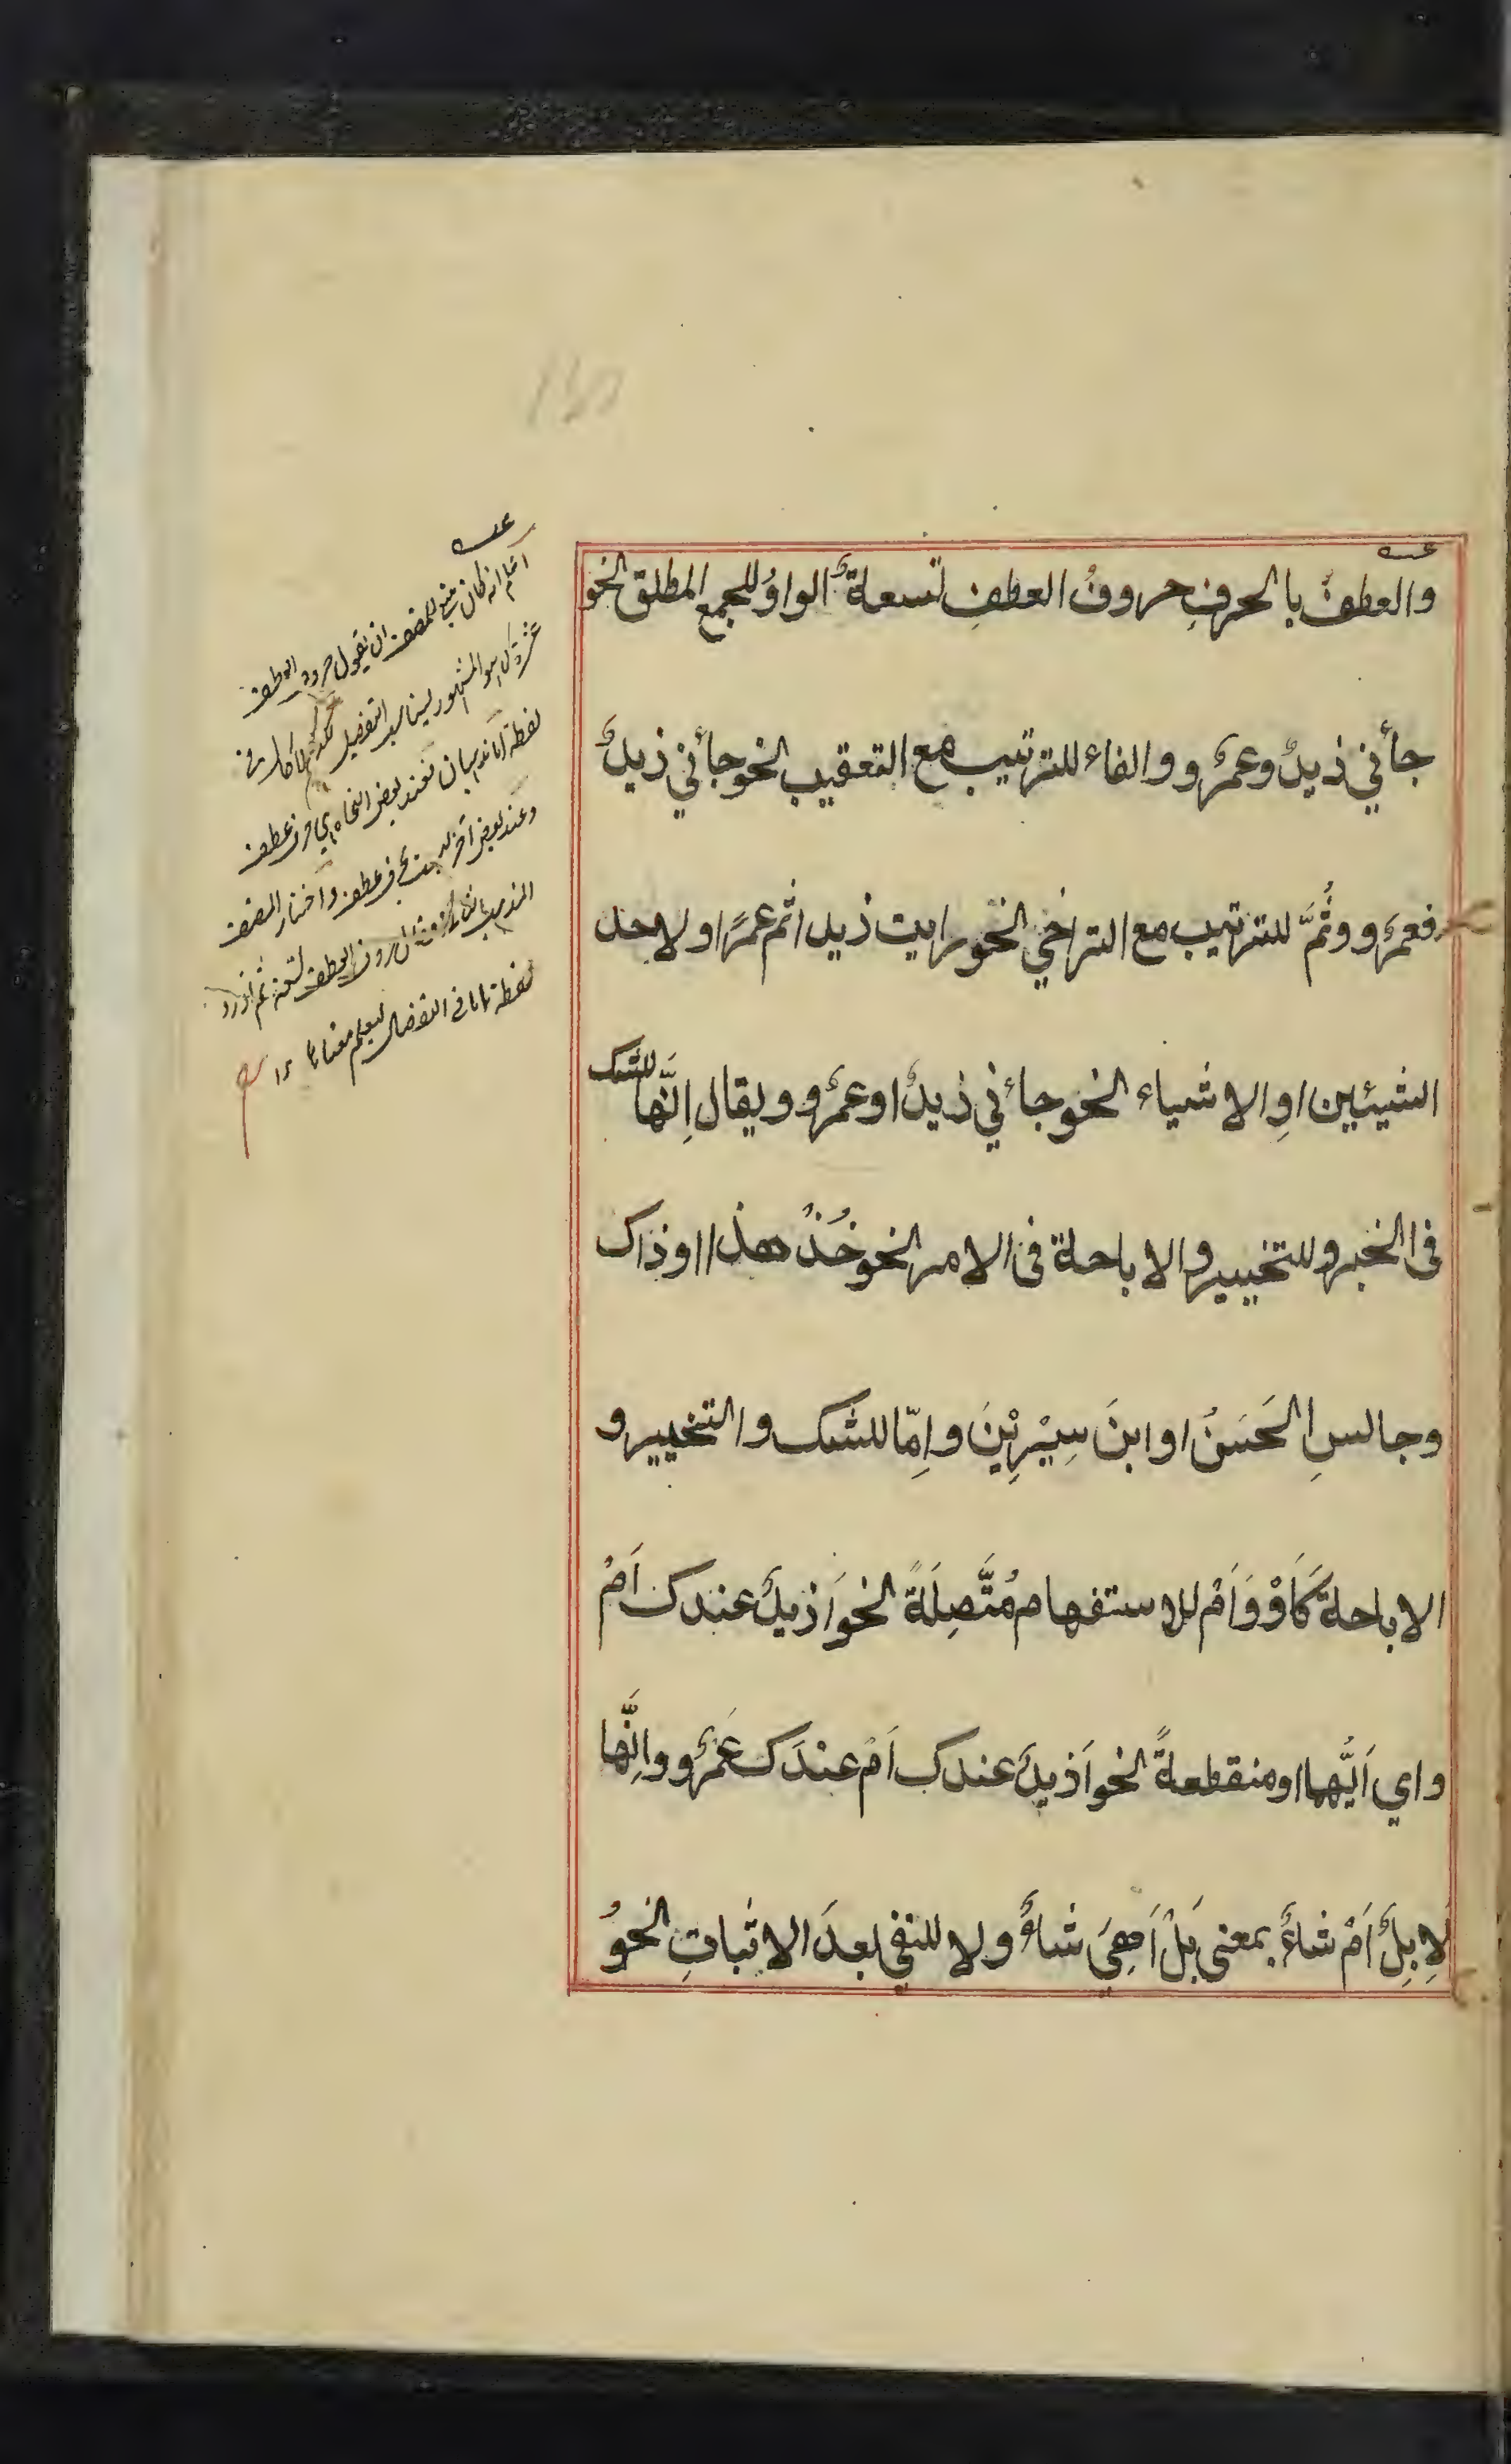 والعطفُ بالحرفِ حروفُ العطفِ تسعةٌ الواوُ للجمع المطلق نحو
جأني زيدٌ وعمرٌو والفاء للترتيب مع التعقيب نحو جأني زيدٌ
فعمرٌو وثُمَّ للترتيب مع التراخي نحو رايت زيدا ثم عمرًا او لاحد
الشيئين اوِ الاشياء نحو جاءني زيدٌ او عمرٌو ويقال اِنَّها للشك
فى الخبر وللتخيير والاباحة فى الامر نحو خُذْ هذا او ذاك
وجالسِ الحَسَنَ او ابنَ سِيْرِيْنَ واِمّا للشك والتخيير و
الاباحة كَاَوْ وَاَمْ للاستفهام مُتَّصِلَةً نحو اَزيدٌ عندك اَمْ
واي اَيُّهما او منقطعةً نحو اَزيدٌ عندك اَمْ عندَك عَمْرٌو واِنَّها
لَاِبِلٌ اَمْ شاءٌ بمعنى بَلْ اَهِيَ شاءٌ ولا للنفي بعدَ الاثباتِ نحوُ
عـه
اعلم انه كان ينبغي للمصنف ان يقول حروف العطف
عشرة كما هو المشهور ليناسب التفصيل
لفظة اما فعند بعض النحاة هي حرف عطف
وعند بعض آخر ليست بحرف عطف واختار المصنف
المذهب الثاني حروف العطف تسعة ثم اورد
لفظة اما في التفصيل ليعلم معناها ١٢